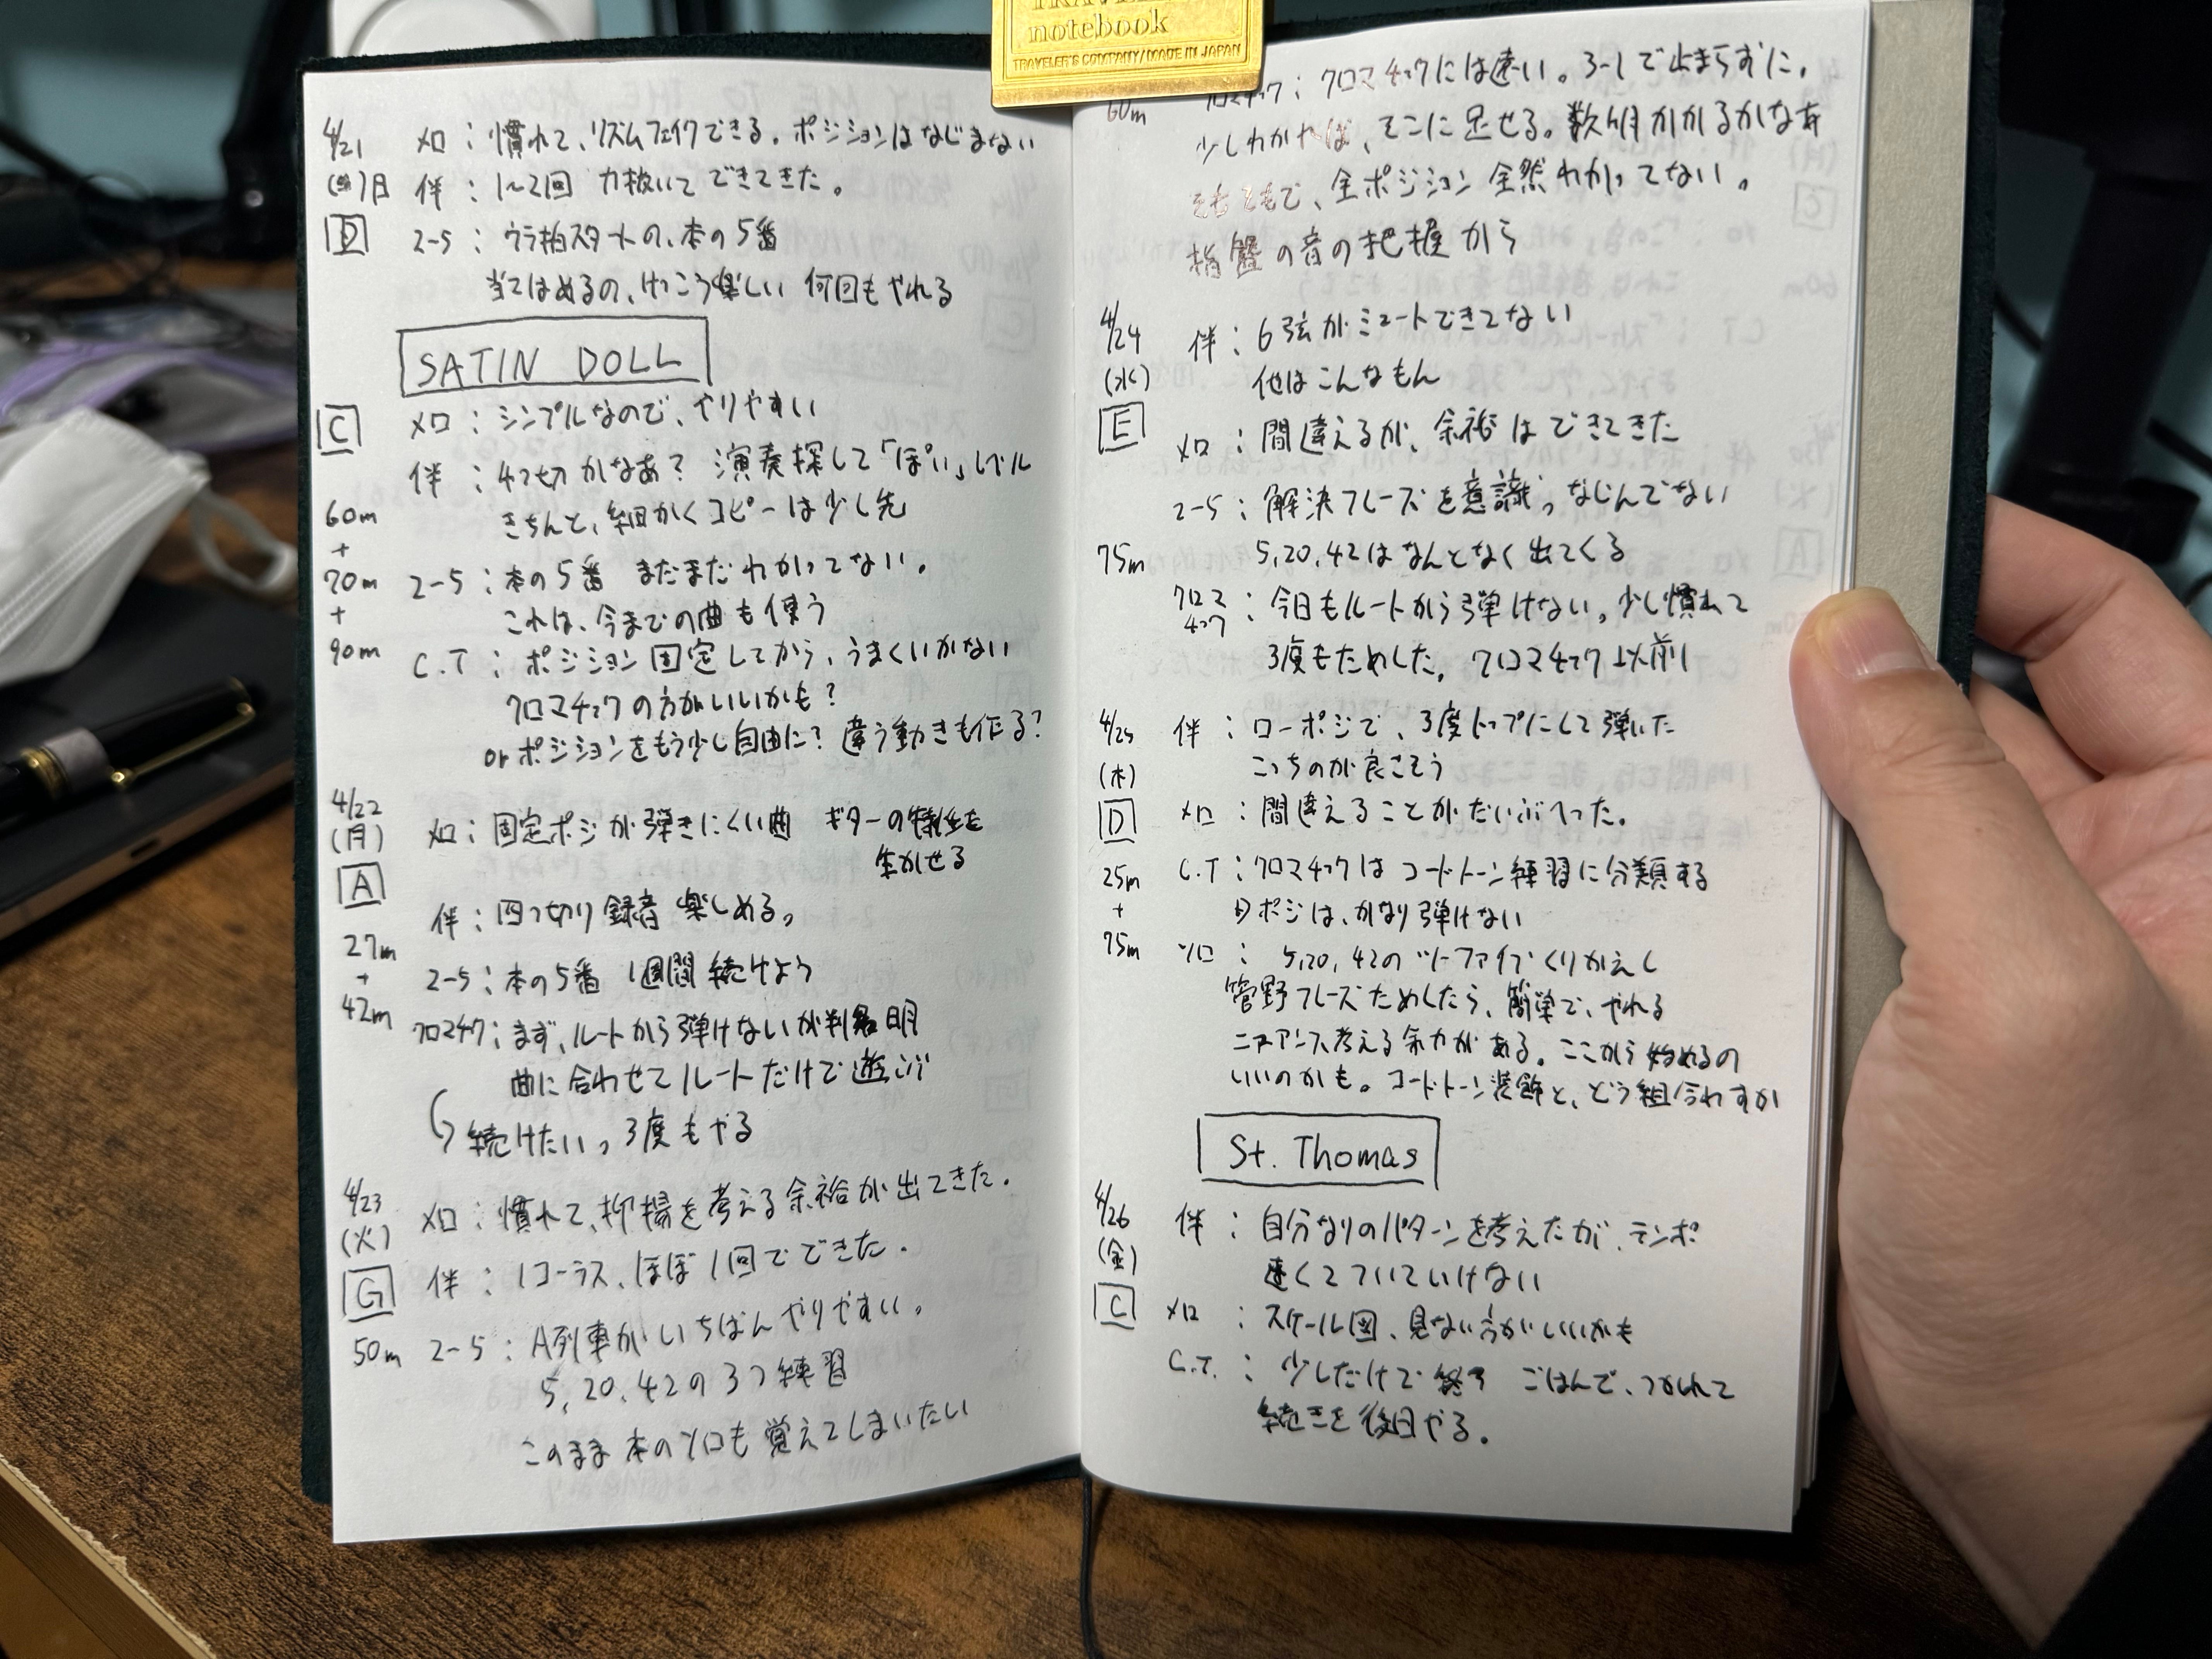 TRAVELER'S
notebook
TRAVELER'S COMPANY/MADE IN JAPAN
4/21 メロ：慣れて、リズムフェイクできる。ポジションはなじまない
日 伴：1〜2回 力抜いて できてきた。
D 2-5：ウラ拍スタートの、本の5番
当てはめるの、けっこう楽しい 何回もやれる
SATIN DOLL
C メロ：シンプルなので、やりやすい
伴：4つ切かなあ？ 演奏探して「ぽい」レベル
60m きちんと、細かくコピーは少し先
+
70m 2-5：本の5番 まだまだわかってない。
+ これは、今までの曲も使う
90m C.T：ポジション固定してから、うまくいかない
クロマチックの方がいいかも？
orポジションをもう少し自由に？違う動きも作る？
4/22
(月) メロ：固定ポジが弾きにくい曲 ギターの特性を
生かせる
A 伴：四つ切り録音 楽しめる。
27m
+ 2-5：本の5番 1週間続けよう
42m クロマチク：まず、ルートから弾けないが判明
曲に合わせてルートだけで遊ぶ
続けたい。3度もやる
4/23
(火) メロ：慣れて、抑揚を考える余裕が出てきた。
G 伴：1コーラス、ほぼ1回でできた。
50m 2-5：A列車がいちばんやりやすい。
5, 20, 42の3つ練習
このまま本のソロも覚えてしまいたい
60m クロマチック：クロマチックには速い。3-1で止まらずに。
少しわかれば、そこに足せる。数ヶ月かかるかなあ
そもそもで、全ポジション全然わかってない。
指盤の音の把握から
4/24
(水) 伴：6弦がミュートできてない
他はこんなもん
E メロ：間違えるが、余裕はできてきた
2-5：解決フレーズを意識。なじんでない
75m 5,20,42はなんとなく出てくる
クロマチック：今日もルートから弾けない。少し慣れて
3度もためした。クロマチック以前!
4/25 伴：ローポジで、3度トップにして弾いた
(木) こっちのが良さそう
D メロ：間違えることがだいぶへった。
25m C.T：クロマチックはコードトーン練習に分類する
+ Dポジは、かなり弾けない
75m ソロ：5,20,42のツーファイブくりかえし
菅野フレーズためしたら、簡単で、やれる
ニュアンス考える余力がある。ここから始めるの
いいのかも。コードトーン装飾と、どう組合わすか
St. Thomas
4/26 伴：自分なりのパターンを考えたが、テンポ
(金) 速くてついていけない
C メロ：スケール図、見ない方がいいかも
C.T.：少しだけで終了 ごはんで、つかれて
続きを後日やる。